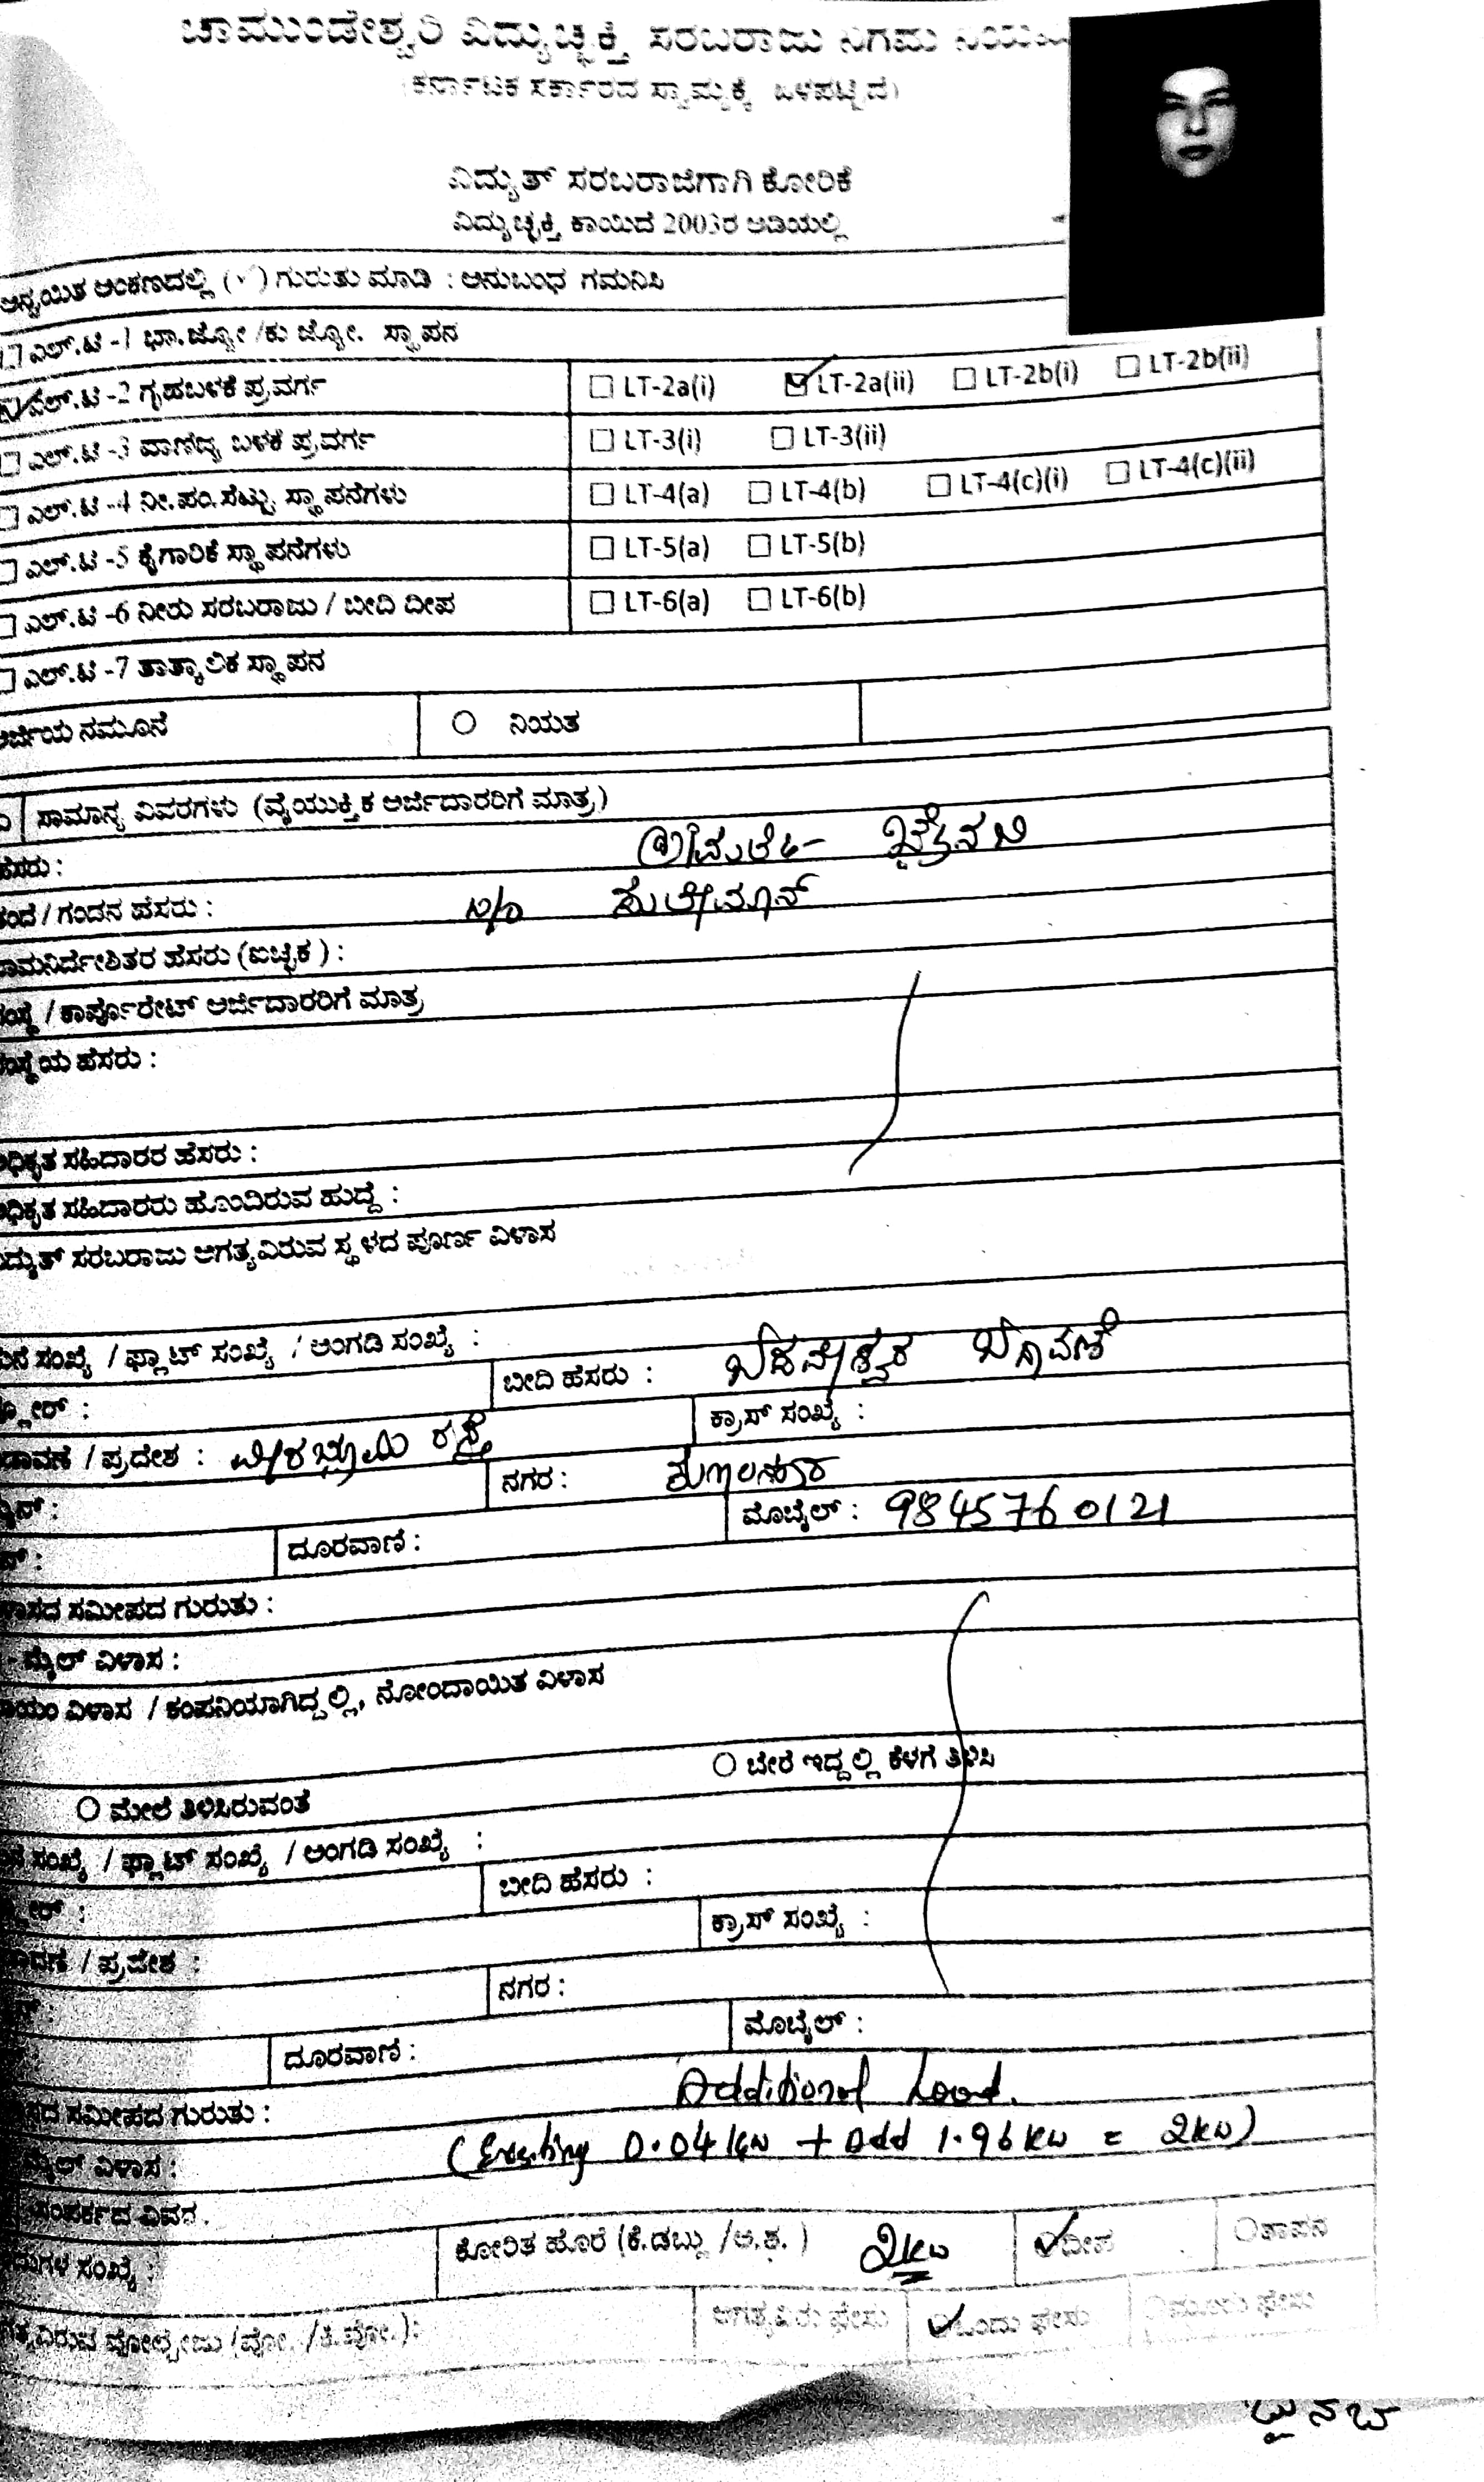 ಚಾಮುಂಡೇಶ್ವರಿ ವಿದ್ಯುಚ್ಛಕ್ತಿ ಸರಬರಾಜು ನಿಗಮ
(ಕರ್ನಾಟಕ ಸರ್ಕಾರದ ಸ್ವಾಮ್ಯಕ್ಕೆ ಒಳಪಟ್ಟಿದೆ)
ವಿದ್ಯುತ್ ಸರಬರಾಜಿಗಾಗಿ ಕೋರಿಕೆ
ವಿದ್ಯುಚ್ಛಕ್ತಿ ಕಾಯಿದೆ 2003ರ ಅಡಿಯಲ್ಲಿ
ಅನ್ವಯಿತ ಅಂಕಣದಲ್ಲಿ (✓) ಗುರುತು ಮಾಡಿ : ಅನುಬಂಧ ಗಮನಿಸಿ
ಎಲ್.ಟಿ -1 ಭಾ.ಜ್ಯೋ /ಕು ಜ್ಯೋ. ಸ್ಥಾಪನ
ಎಲ್.ಟಿ -2 ಗೃಹಬಳಕೆ ಪ್ರವರ್ಗ LT-2a(i) LT-2a(ii) LT-2b(i) LT-2b(ii)
ಎಲ್.ಟಿ -3 ವಾಣಿಜ್ಯ ಬಳಕೆ ಪ್ರವರ್ಗ LT-3(i) LT-3(ii)
ಎಲ್.ಟಿ -4 ನೀ.ಪಂ.ಸೆಟ್ಟು ಸ್ಥಾಪನೆಗಳು LT-4(a) LT-4(b) LT-4(c)(i) LT-4(c)(ii)
ಎಲ್.ಟಿ -5 ಕೈಗಾರಿಕೆ ಸ್ಥಾಪನೆಗಳು LT-5(a) LT-5(b)
ಎಲ್.ಟಿ -6 ನೀರು ಸರಬರಾಜು / ಬೀದಿ ದೀಪ LT-6(a) LT-6(b)
ಎಲ್.ಟಿ -7 ತಾತ್ಕಾಲಿಕ ಸ್ಥಾಪನ
ಅರ್ಜಿಯ ನಮೂನೆ ನಿಯತ
ಸಾಮಾನ್ಯ ವಿವರಗಳು (ವೈಯುಕ್ತಿಕ ಅರ್ಜಿದಾರರಿಗೆ ಮಾತ್ರ)
ಹೆಸರು :
ತಂದೆ / ಗಂಡನ ಹೆಸರು : W/o ಸುಲೇಮಾನ್
ನಾಮನಿರ್ದೇಶಿತರ ಹೆಸರು (ಐಚ್ಛಿಕ) :
ಸಂಸ್ಥೆ / ಕಾರ್ಪೊರೇಟ್ ಅರ್ಜಿದಾರರಿಗೆ ಮಾತ್ರ
ಸಂಸ್ಥೆಯ ಹೆಸರು :
ಅಧಿಕೃತ ಸಹಿದಾರರ ಹೆಸರು :
ಅಧಿಕೃತ ಸಹಿದಾರರು ಹೊಂದಿರುವ ಹುದ್ದೆ :
ವಿದ್ಯುತ್ ಸರಬರಾಜು ಅಗತ್ಯವಿರುವ ಸ್ಥಳದ ಪೂರ್ಣ ವಿಳಾಸ
ಮನೆ ಸಂಖ್ಯೆ / ಫ್ಲಾಟ್ ಸಂಖ್ಯೆ / ಅಂಗಡಿ ಸಂಖ್ಯೆ :
ಫ್ಲೋರ್ : ಬೀದಿ ಹೆಸರು : ಬಸವೇಶ್ವರ ಬಡಾವಣೆ
ಬಡಾವಣೆ / ಪ್ರದೇಶ : ವೀರಭೂಮಿ ರಸ್ತೆ ಕ್ರಾಸ್ ಸಂಖ್ಯೆ :
ನಗರ :
ದೂರವಾಣಿ : ಮೊಬೈಲ್ : 9845760121
ವಿಳಾಸದ ಸಮೀಪದ ಗುರುತು :
ಮೈಲ್ ವಿಳಾಸ :
ಖಾಯಂ ವಿಳಾಸ / ಕಂಪನಿಯಾಗಿದ್ದಲ್ಲಿ, ನೋಂದಾಯಿತ ವಿಳಾಸ
ಮೇಲೆ ತಿಳಿಸಿರುವಂತೆ ಬೇರೆ ಇದ್ದಲ್ಲಿ ಕೆಳಗೆ ತಿಳಿಸಿ
ಮನೆ ಸಂಖ್ಯೆ / ಫ್ಲಾಟ್ ಸಂಖ್ಯೆ / ಅಂಗಡಿ ಸಂಖ್ಯೆ :
ಫ್ಲೋರ್ : ಬೀದಿ ಹೆಸರು :
ಬಡಾವಣೆ / ಪ್ರದೇಶ : ಕ್ರಾಸ್ ಸಂಖ್ಯೆ :
ನಗರ :
ದೂರವಾಣಿ : ಮೊಬೈಲ್ :
ವಿಳಾಸದ ಸಮೀಪದ ಗುರುತು : Additional Load.
ಮೈಲ್ ವಿಳಾಸ : (Existing 0.04 kw + Add 1.96 kw = 2kw)
ಸಂಪರ್ಕದ ವಿವರ.
ಸಂಖ್ಯೆ : ಕೋರಿತ ಹೊರೆ (ಕೆ.ಡಬ್ಲು /ಅ.ಶ. ) 2kw ದೀಪ ತಾಪನ
ಅಗತ್ಯವಿರುವ ವೋಲ್ಟೇಜು (ವೋ. /ಕಿ.ವೋ.): ಅಗತ್ಯವಿರು ಫೇಸು ಒಂದು ಫೇಸು ಮೂರು ಫೇಸು